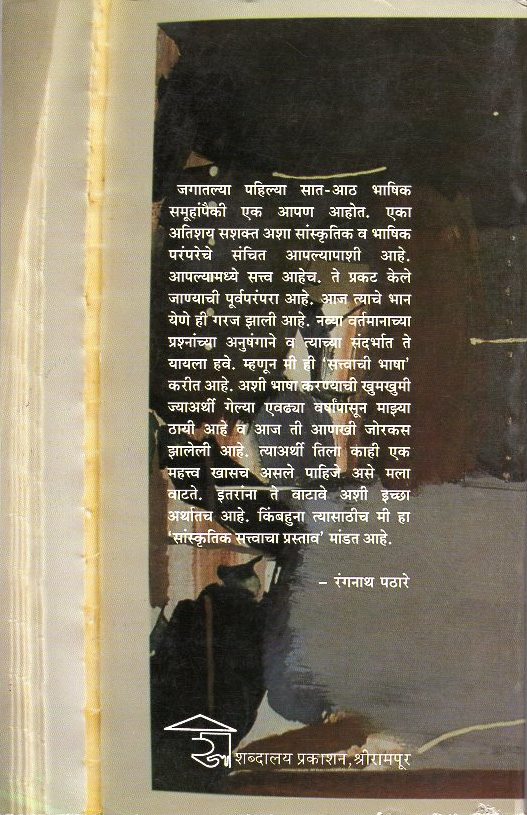 जगातल्या पहिल्या सात-आठ भाषिक
समूहांपैकी एक आपण आहोत. एका
अतिशय सशक्त अशा सांस्कृतिक व भाषिक
परंपरेचे संचित आपल्यापाशी आहे.
आपल्यामध्ये सत्त्व आहेच. ते प्रकट केले
जाण्याची पूर्वपरंपरा आहे. आज त्याचे भान
येणे ही गरज झाली आहे. नव्या वर्तमानाच्या
प्रश्नांच्या अनुषंगाने व त्याच्या संदर्भात ते
यायला हवे. म्हणून मी ही ‘सत्त्वाची भाषा’
करीत आहे. अशी भाषा करण्याची खुमखुमी
ज्याअर्थी गेल्या एवढ्या वर्षांपासून माझ्या
ठायी आहे व आज ती आणखी जोरकस
झालेली आहे. त्याअर्थी तिला काही एक
महत्त्व खासच असले पाहिजे असे मला
वाटते. इतरांना ते वाटावे अशी इच्छा
अर्थातच आहे. किंबहुना त्यासाठीच मी हा
‘सांस्कृतिक सत्त्वाचा प्रस्ताव’ मांडत आहे.
– रंगनाथ पठारे
शब्दालय प्रकाशन, श्रीरामपूर